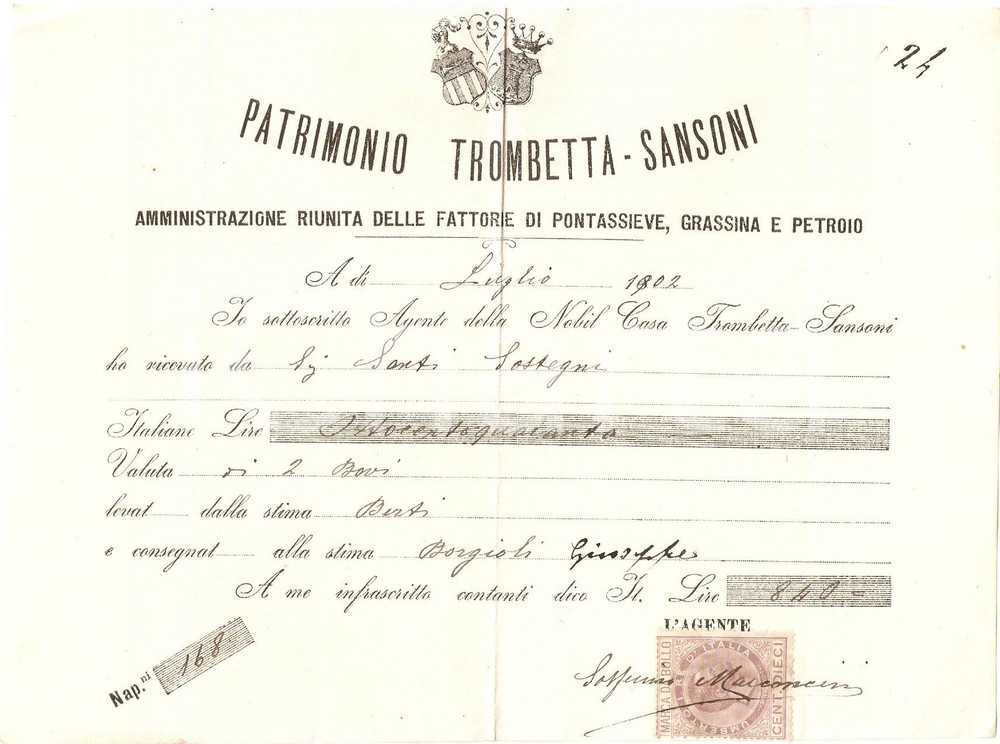 24
PATRIMONIO TROMBETTA - SANSONI
AMMINISTRAZIONE RIUNITA DELLE FATTORIE DI PONTASSIEVE, GRASSINA E PETROIO
A dì Luglio 1902
Io sottoscritto Agente della Nobil Casa Trombetta-Sansoni
ho ricevuto da Sig Santi Sostegni
Italiane Lire Ottocentoquaranta
Valuta di 2 Bovi
levat dalla stima Berti
e consegnat alla stima Borgioli Giuseppe
A me infrascritto contanti dico It. Lire 840 =
L'AGENTE
Nap.ni 168.
MARCA DA BOLLO
RE D'ITALIA
CENT. DIECI
UMBERTO I
Marconcini